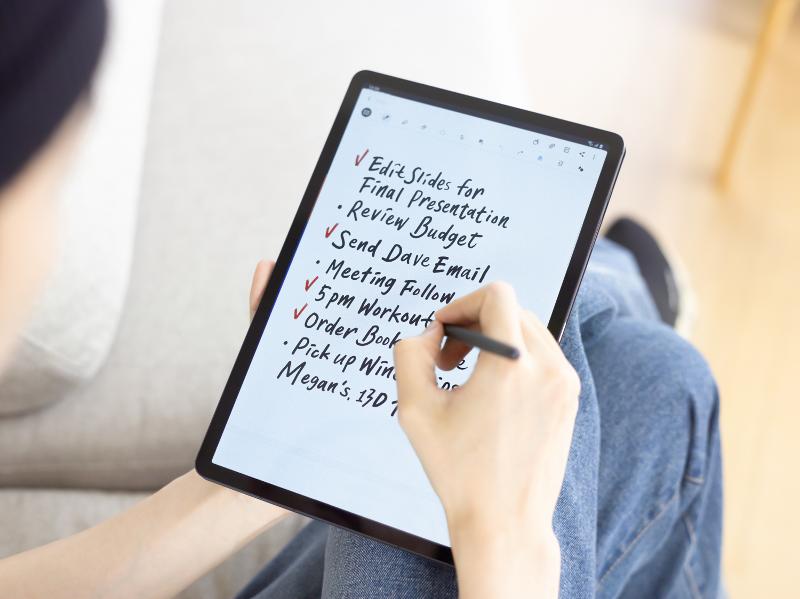 Edit Slides for
Final Presentation
• Review Budget
Send Dave Email
• Meeting Follow
5pm Workout
Order Book
• Pick up
Megan's, 13D